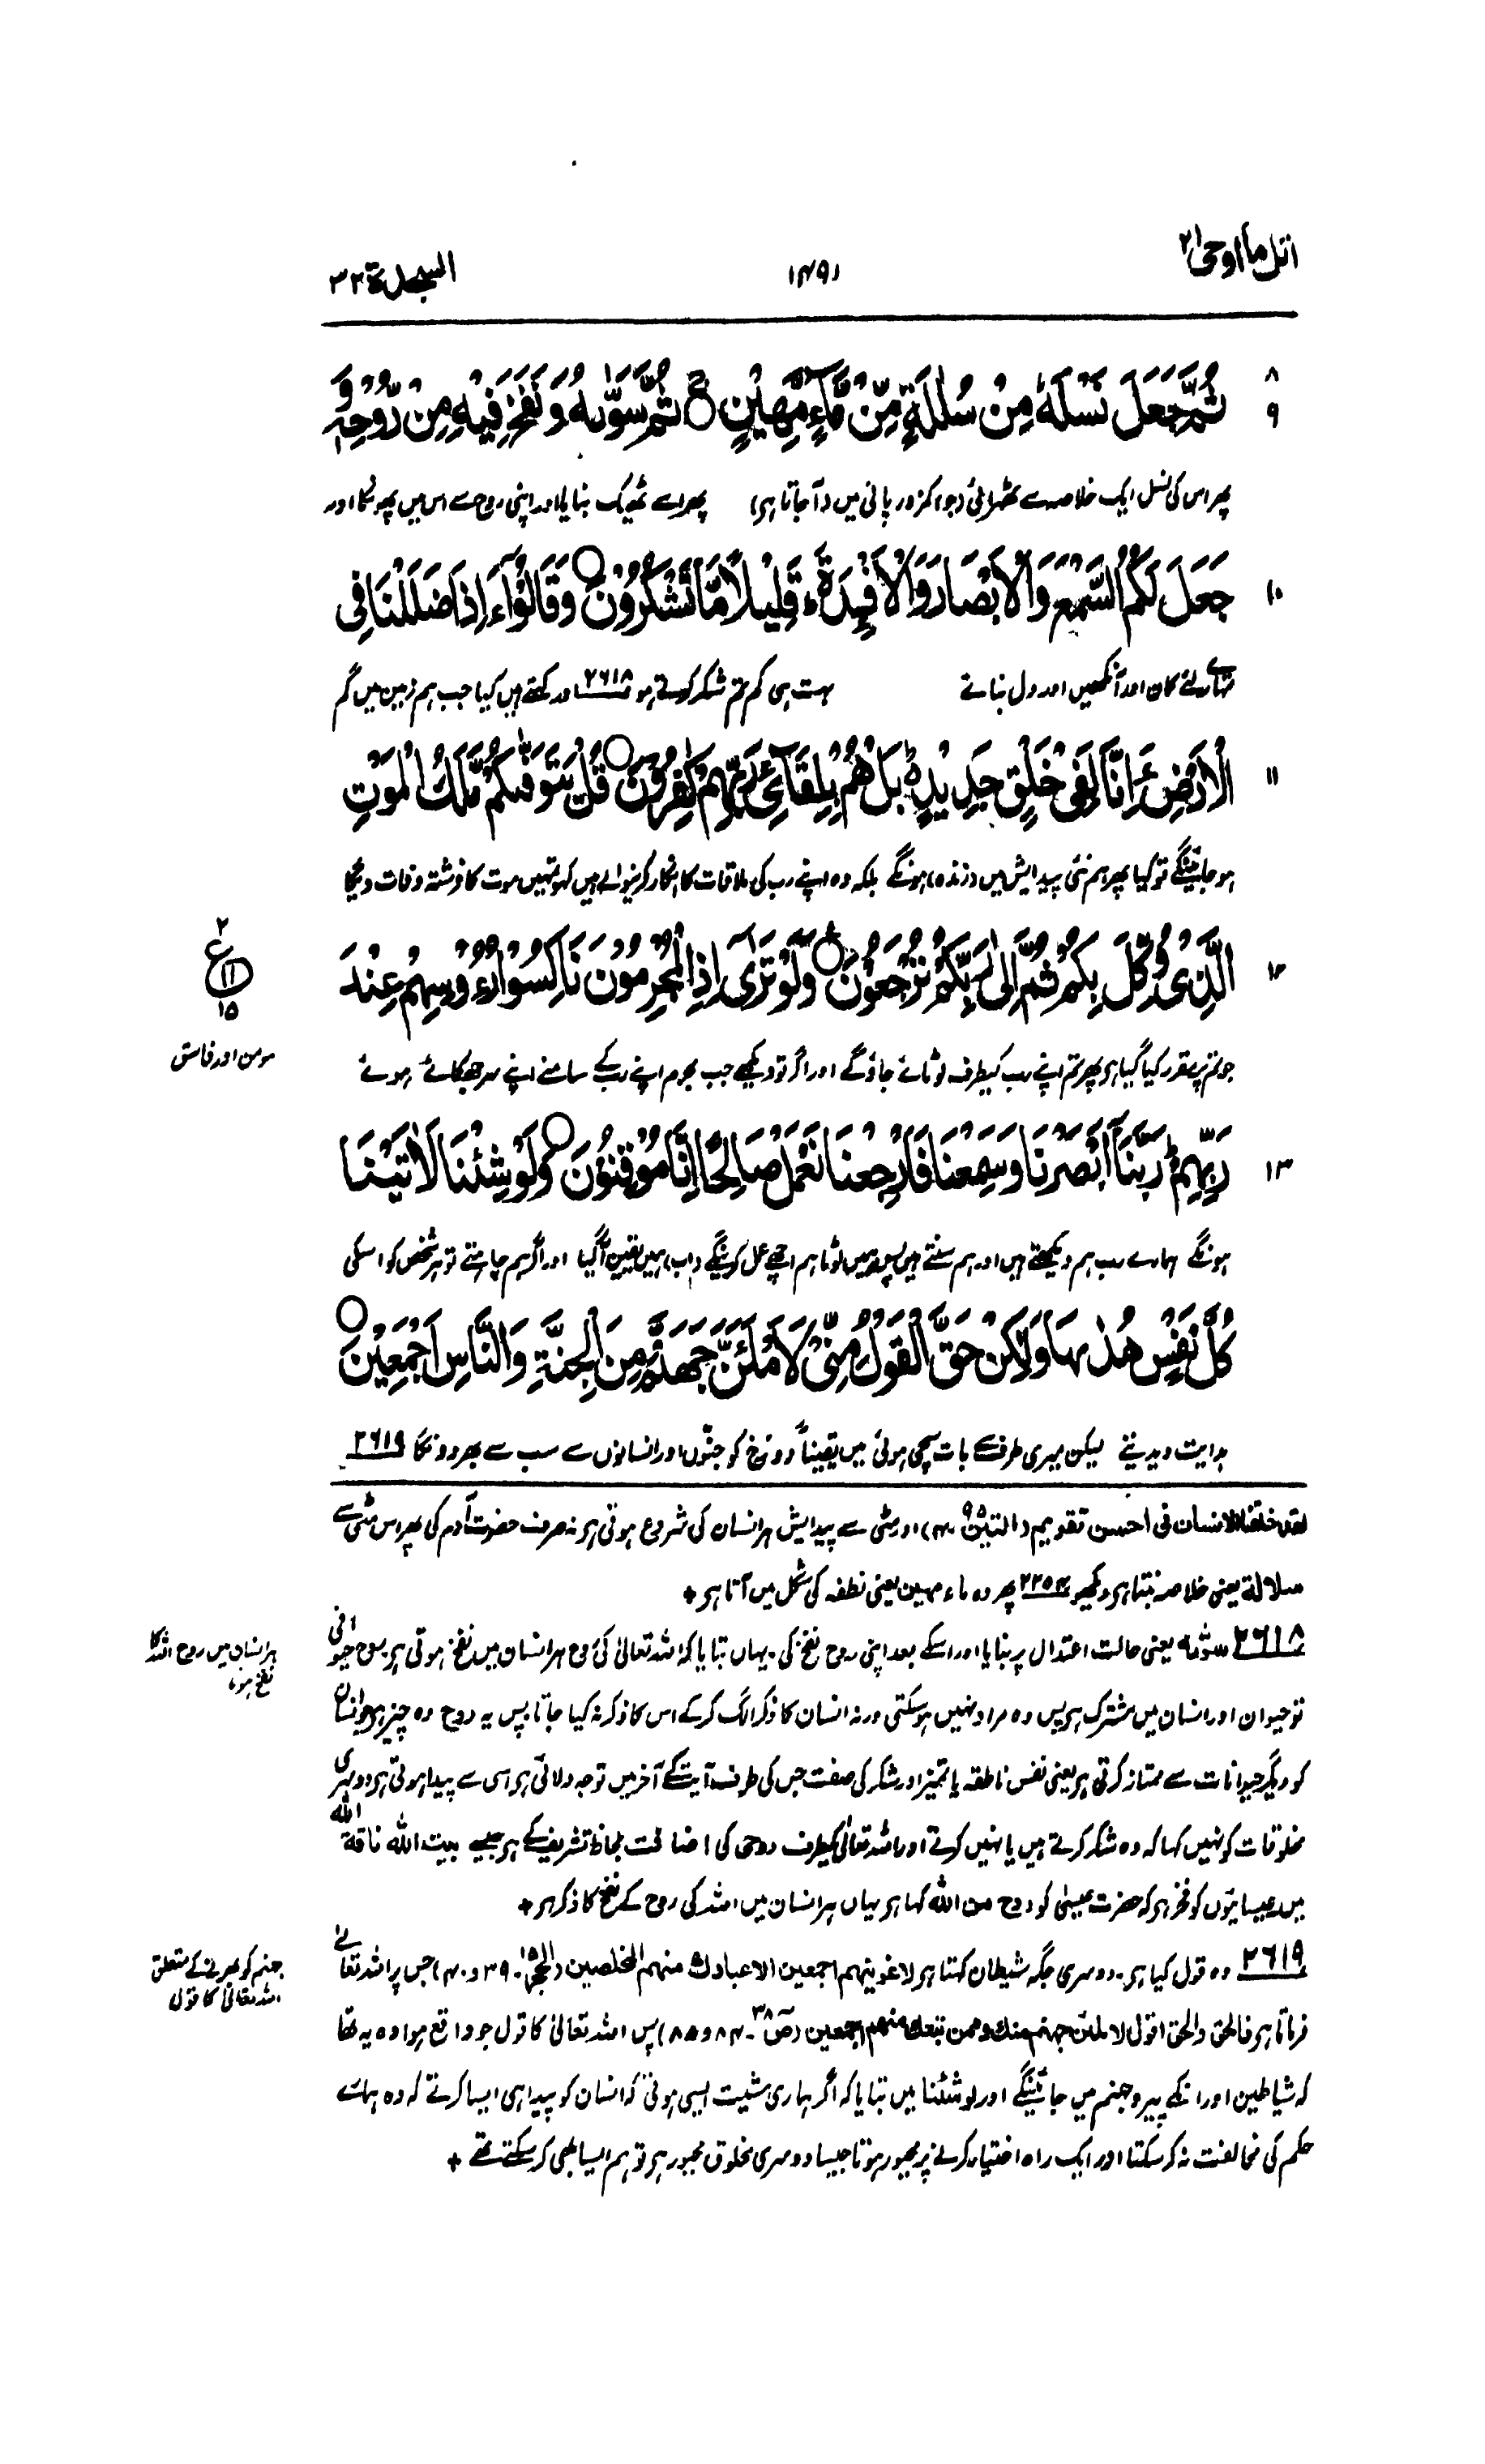 اتل ما اوحی ۲۱
۱۴۹۱
السجدة ۳۲
۸
۹
ثُمَّ جَعَلَ نَسْلَهٗ مِنْ سُلٰلَةٍ مِّنْ مَّآءٍ مَّهِيْنٍ ۝ ثُمَّ سَوّٰىهُ وَ نَفَخَ فِيْهِ مِنْ رُّوْحِهٖ وَ
پھر اس کی نسل ایک خلاصہ سے ٹھہرائی (جو) کمزور پانی میں (آجاتا ہے) پھر اسے ٹھیک بنایا اور اپنی روح سے اس میں پھونکا اور
۱۰
جَعَلَ لَكُمُ السَّمْعَ وَ الْاَبْصَارَ وَ الْاَفْـِٕدَةَ ؕ قَلِيْلًا مَّا تَشْكُرُوْنَ ۝ وَ قَالُوْٓا ءَاِذَا ضَلَلْنَا فِى
تمہارے لئے کان اور آنکھیں اور دل بنائے بہت ہی کم تم شکر کرتے ہو ۲۶۱۸ اور کہتے ہیں کیا جب ہم زمین میں گم
۱۱
الْاَرْضِ ءَاِنَّا لَفِىْ خَلْقٍ جَدِيْدٍ ؕ بَلْ هُمْ بِلِقَآئِ رَبِّهِمْ كٰفِرُوْنَ ۝ قُلْ يَتَوَفّٰىكُمْ مَّلَكُ الْمَوْتِ
ہو جائینگے تو کیا پھر ہم نئی پیدایش میں (زندہ) ہونگے بلکہ وہ اپنے رب کی ملاقات کا انکار کرنیوالے ہیں کہو تمہیں موت کا فرشتہ وفات دیگا
۲
ع
۱۱
۱۵
۱۲
الَّذِىْ وُكِّلَ بِكُمْ ثُمَّ اِلٰى رَبِّكُمْ تُرْجَعُوْنَ ۝ وَ لَوْ تَرٰٓى اِذِ الْمُجْرِمُوْنَ نَاكِسُوْا رُءُوْسِهِمْ عِنْدَ
مومن اور فاسق
جو تم پر مقرر کیا گیا ہے پھر تم اپنے رب کیطرف لوٹائے جاؤگے اور اگر تو دیکھے جب مجرم اپنے رب کے سامنے اپنے سر جھکائے ہوئے
۱۳
رَبِّهِمْ ؕ رَبَّنَآ اَبْصَرْنَا وَ سَمِعْنَا فَارْجِعْنَا نَعْمَلْ صَالِحًا اِنَّا مُوْقِنُوْنَ ۝ وَ لَوْ شِئْنَا لَاٰتَيْنَا
ہونگے ہمارے رب ہم دیکھتے ہیں اور ہم سنتے ہیں پس ہمیں لوٹا ہم اچھے عمل کرینگے (اب) ہمیں یقین آگیا اور اگر ہم چاہتے تو ہر شخص کو اسکی
كُلَّ نَفْسٍ هُدٰىهَا وَ لٰكِنْ حَقَّ الْقَوْلُ مِنِّىْ لَاَمْلَئَنَّ جَهَنَّمَ مِنَ الْجِنَّةِ وَ النَّاسِ اَجْمَعِيْنَ ۝
ہدایت دیدیتے لیکن میری طرف سے بات سچی ہوئی میں یقیناً دوزخ کو جنّوں اور انسانوں سے سب سے بھر دونگا ۲۶۱۹
لقد خلقنا الانسان فی احسن تقویم (التین ۹۵۔۴) اور مٹی سے پیدایش ہر انسان کی شروع ہوتی ہے نہ صرف حضرت آدم کی پھر اس مٹی سے
سلالة یعنی خلاصہ بنتا ہے دیکھو ۲۲۵۴ پھر وہ ماء مہین یعنی نطفہ کی شکل میں آتا ہے +
۲۶۱۸ سوّٰىه یعنی حالت اعتدال پر بنایا اور اسکے بعد اپنی روح نفخ کی۔ یہاں بتایا کہ اللہ تعالیٰ کی روح ہر انسان میں نفخ ہوتی ہے روح حیوانی
ہر انسان میں روح اللہ کا
نفخ ہونا
تو حیوان اور انسان میں مشترک ہے پس وہ مراد نہیں ہو سکتی ورنہ انسان کا ذکر الگ کر کے اس کا ذکر نہ کیا جاتا پس یہ روح وہ چیز ہے جو انسان
کو دیگر حیوانات سے ممتاز کرتی ہے یعنی نفس ناطقہ یا تمیز اور شکر کی صفت جس کی طرف آیت کے آخر میں توجہ دلائی ہے اسی سے پیدا ہوتی ہے دوسری
مخلوقات کو نہیں کہا کہ وہ شکر کرتے ہیں یا نہیں کرتے اور اللہ تعالیٰ کیطرف روحی کی اضافت بلحاظ تشریف کے ہے جیسے بیت اللہ ناقة اللہ
میں عیسایئوں کو فخر ہے کہ حضرت عیسیٰ کو روح من اللہ کہا ہے یہاں ہر انسان میں اللہ کی روح کے نفخ کا ذکر ہے +
۲۶۱۹ وہ قول کیا ہے۔ دوسری جگہ شیطان کہتا ہے لاغوینهم اجمعین الا عبادك منهم المخلصین (الحجر ۱۵۔۳۹ و ۴۰) جس پر اللہ تعالےٰ
جہنم کو بھرنے کے متعلق
اللہ تعالیٰ کا قول
فرماتا ہے فالحق والحق اقول لاملئن جهنم منك وممن تبعك منهم اجمعین (ص ۳۸۔۸۴ و ۸۵) پس اللہ تعالیٰ کا قول جو واقع ہوا وہ یہ تھا
کہ شیاطین اور انکے پیرو جہنم میں جائینگے اور لو شئنا میں بتایا کہ اگر ہماری مشیت ایسی ہوتی کہ انسان کو پیدا ہی ایسا کرتے کہ وہ ہمارے
حکم کی مخالفت نہ کر سکتا اور ایک راہ اختیار کرنے پر مجبور ہوتا جیسا دوسری مخلوق مجبور ہے تو ہم ایسا بھی کر سکتے تھے +